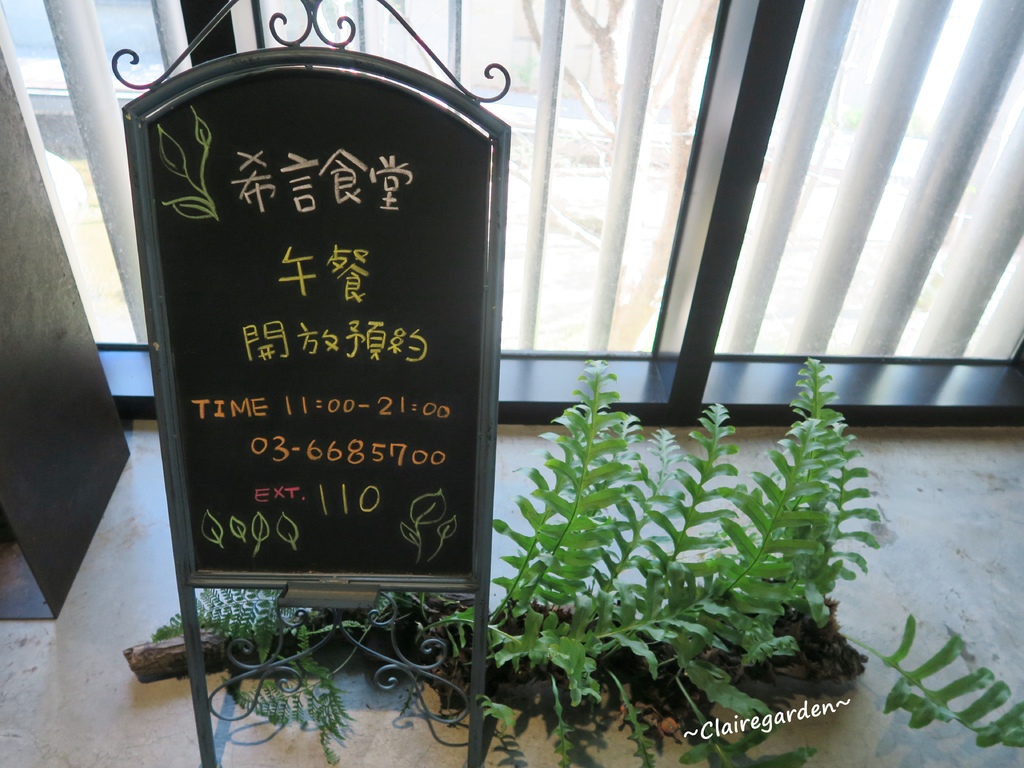 希言食堂
午餐
開放預約
TIME 11:00-21:00
03-6685700
EXT. 110
~Clairegarden~